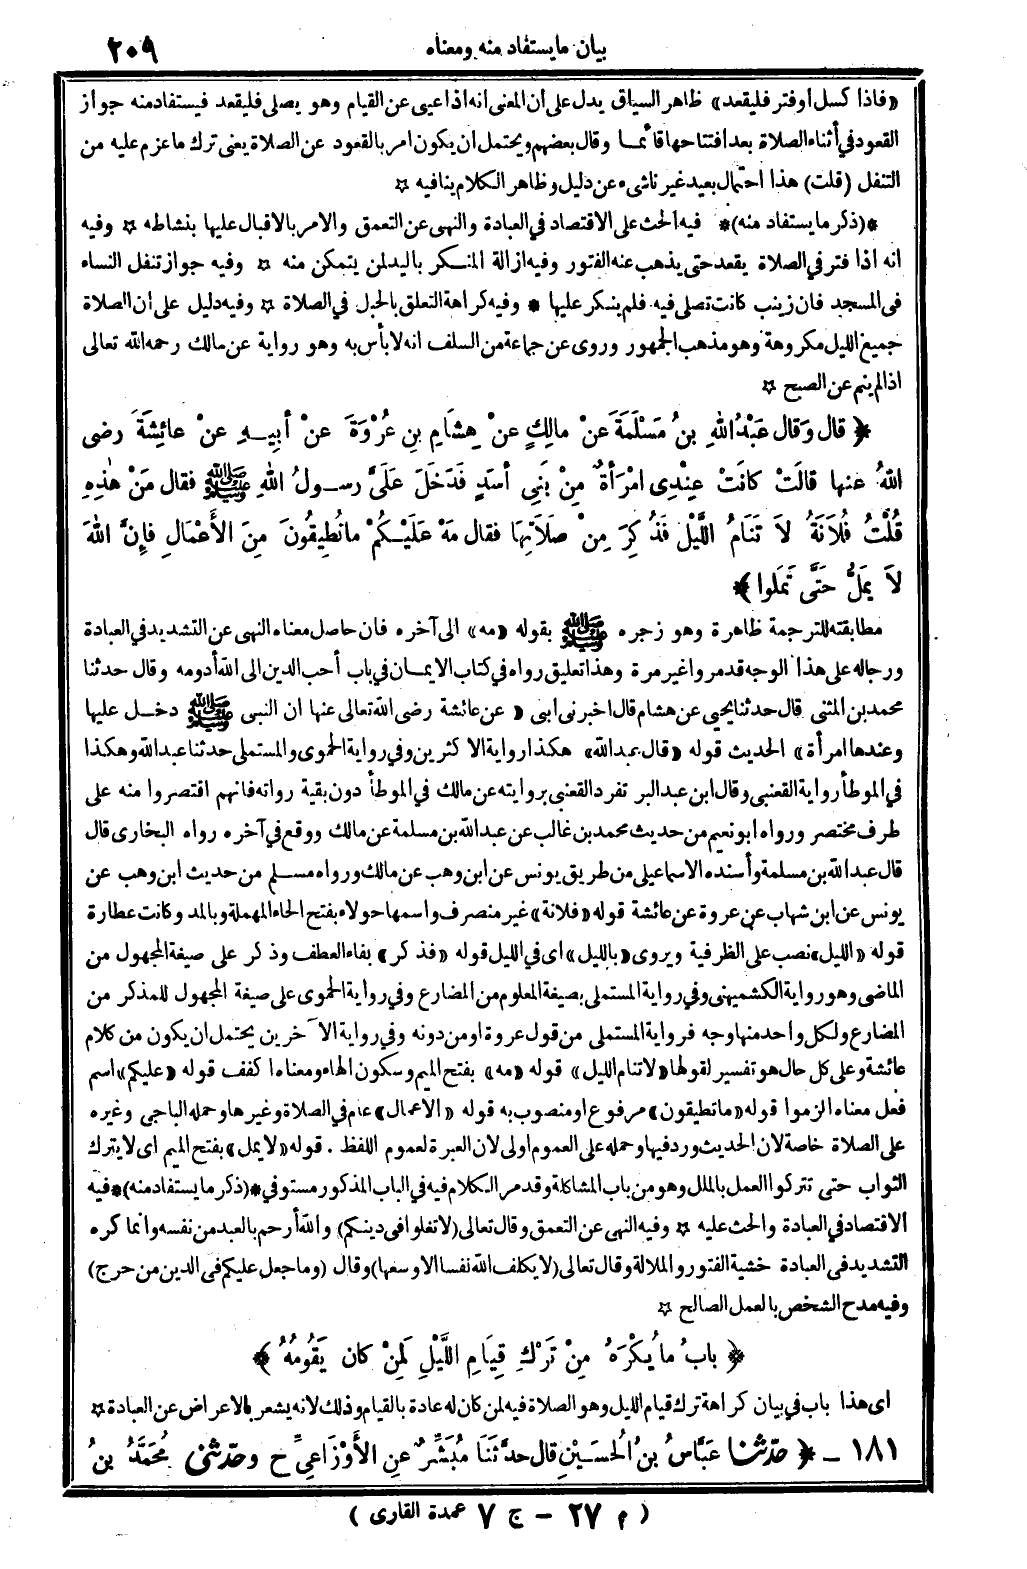 بيان ما يستفاد منه ومعناه
٢٠٩
«فاذا كسل اوفتر فليقعد» ظاهر السياق يدل على ان المعنى انه اذا عيى عن القيام وهو يصلى فليقعد فيستفاد منه جواز
القعود في أثناء الصلاة بعد افتتاحها قائما وقال بعضهم ويحتمل ان يكون امر بالقعود عن الصلاة يعنى ترك ما عزم عليه من
التنفل (قلت) هذا احتمال بعيد غير ناشىء عن دليل وظاهر الكلام ينافيه ☆
*(ذكر ما يستفاد منه)* فيه الحث على الاقتصاد في العبادة والنهى عن التعمق والامر بالاقبال عليها بنشاطه ☆ وفيه
انه اذا فتر في الصلاة يقعد حتى يذهب عنه الفتور وفيه ازالة المنكر باليد لمن يتمكن منه ☆ وفيه جواز تنفل النساء
فى المسجد فان زينب كانت تصلى فيه فلم ينكر عليها * وفيه كراهة التعلق بالحبل في الصلاة ☆ وفيه دليل على ان الصلاة
جميع الليل مكروهة وهو مذهب الجمهور وروى عن جماعة من السلف انه لابأس به وهو رواية عن مالك رحمه الله تعالى
اذا لم ينم عن الصبح ☆
﴿ قال وَقال عَبْدُ اللهِ بنُ مَسْلَمَةَ عَنْ مالِكٍ عنْ هِشَامِ بنِ عُرْوَةَ عنْ أبِيهِ عنْ عائِشَةَ رضى
اللهُ عنها قالَتْ كانَتْ عِنْدِى امْرَأةٌ مِنْ بَنِى أسَدٍ فَدَخَلَ عَلَىَّ رسولُ اللهِ ﷺ فقال مَنْ هٰذِهِ
قُلْتُ فُلاَنَةُ لاَ تَنَامُ اللَّيْلَ فَذُكِرَ مِنْ صَلاَتِهَا فقال مَهْ عَلَيْكُمْ ماتُطِيقُونَ مِنَ الأَعْمَالِ فإِنَّ اللهَ
لاَ يَمَلُّ حَتَّى تَمَلوا ﴾
مطابقته للترجمة ظاهرة وهو زجره ﷺ بقوله «مه» الى آخره فان حاصل معناه النهى عن التشديد في العبادة
ورجاله على هذا الوجه قد مروا غير مرة وهذا تعليق رواه في كتاب الايمان في باب أحب الدين الى الله أدومه وقال حدثنا
محمد بن المثنى قال حدثنا يحيى عن هشام قال اخبرنى ابى « عن عائشة رضى الله تعالى عنها ان النبى ﷺ دخل عليها
وعندها امرأة» الحديث قوله «قال عبد الله» هكذا رواية الاكثرين وفي رواية الحموى والمستملى حدثنا عبد الله وهكذا
في الموطأ رواية القعنبى وقال ابن عبد البر تفرد القعنبى بروايته عن مالك في الموطأ دون بقية رواته فانهم اقتصروا منه على
طرف مختصر ورواه ابو نعيم من حديث محمد بن غالب عن عبد الله بن مسلمة عن مالك ووقع في آخره رواه البخارى قال
قال عبد الله بن مسلمة وأسنده الاسماعيلى من طريق يونس عن ابن وهب عن مالك ورواه مسلم من حديث ابن وهب عن
يونس عن ابن شهاب عن عروة عن عائشة قوله «فلانة» غير منصرف واسمها حولاء بفتح الحاء المهملة وبالمد وكانت عطارة
قوله «الليل» نصب على الظرفية ويروى «بالليل» اى في الليل قوله «فذكر» بفاء العطف وذكر على صيغة المجهول من
الماضى وهو رواية الكشميهنى وفي رواية المستملى بصيغة المعلوم من المضارع وفي رواية الحموى على صيغة المجهول للمذكر من
المضارع ولكل واحد منها وجه فرواية المستملى من قول عروة او من دونه وفي رواية الآخرين يحتمل ان يكون من كلام
عائشة وعلى كل حال هو تفسير لقولها «لا تنام الليل» قوله «مه» بفتح الميم وسكون الهاء ومعناه اكفف قوله «عليكم» اسم
فعل معناه الزموا قوله «ما تطيقون» مرفوع او منصوب به قوله «الاعمال» عام في الصلاة وغيرها وحمله الباجى وغيره
على الصلاة خاصة لان الحديث ورد فيها وحمله على العموم اولى لان العبرة لعموم اللفظ . قوله «لا يمل» بفتح الميم اى لا يترك
الثواب حتى تتركوا العمل بالملل وهو من باب المشاكلة وقد مر الكلام فيه في الباب المذكور مستوفي *(ذكر ما يستفاد منه)* فيه
الاقتصاد في العبادة والحث عليه ☆ وفيه النهى عن التعمق وقال تعالى (لا تغلوا فى دينكم) والله أرحم بالعبد من نفسه وانما كره
التشديد في العبادة خشية الفتور والملالة وقال تعالى (لا يكلف الله نفسا الا وسعها) وقال (وما جعل عليكم فى الدين من حرج)
وفيه مدح الشخص بالعمل الصالح ☆
﴿ بابُ ما يُكْرَهُ مِنْ تَرْكِ قِيَامِ اللَّيْلِ لِمَنْ كان يَقُومُهُ ﴾
اى هذا باب في بيان كراهة ترك قيام الليل وهو الصلاة فيه لمن كان له عادة بالقيام وذلك لانه يشعر بالاعراض عن العبادة ☆
١٨١ ـ ﴿ حدّثنا عَبَّاسُ بنُ الحُسَيْنِ قال حدَّثَنَا مُبَشِّرٌ عنِ الأَوْزَاعِىِّ ح وحدّثنى مُحَمَّدُ بنُ
( م ٢٧ ـ ج ٧ عمدة القارى )